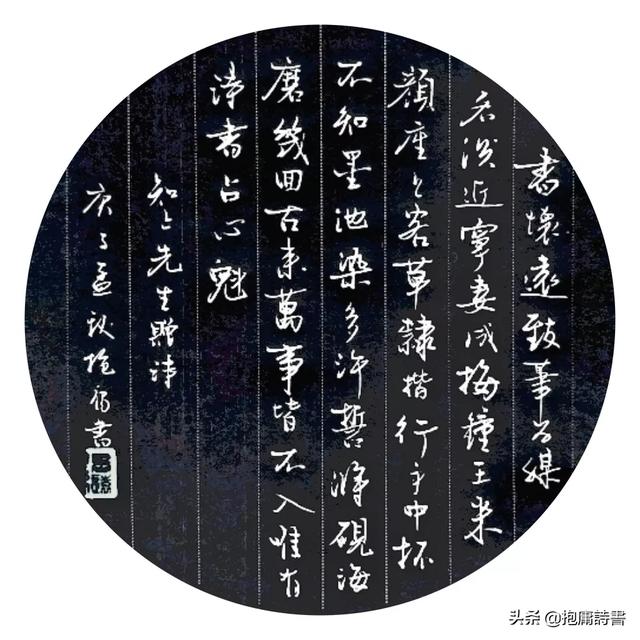 書懷遠致筆為媒
名淡近寧妻成梅鐘王米
顏座上客草隸楷行手中杯
不知墨池染多許誓將硯海
磨幾回古來萬事皆不入惟有
詩書占心魁
知上先生贈詩
庚子孟秋抱庸書
头条 @抱庸詩書